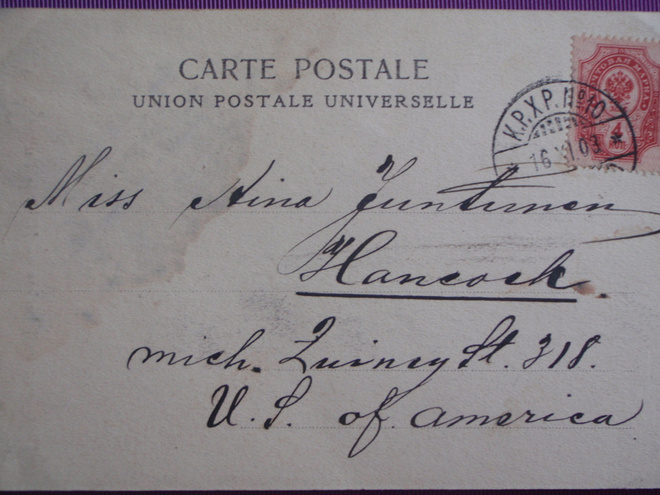 CARTE POSTALE
UNION POSTALE UNIVERSELLE
K.P.XP. No 10
16 XI.03
4
КОП
Miss Aina Juntunen
Hancock.
Mich. Quincy St. 318.
U. S. of America